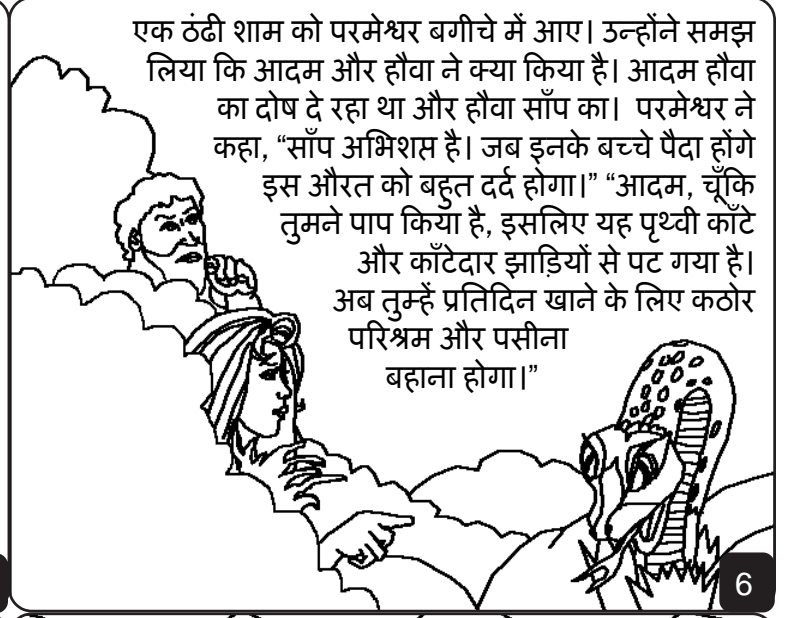 एक ठंढी शाम को परमेश्वर बगीचे में आए। उन्होंने समझ
लिया कि आदम और हौवा ने क्या किया है। आदम हौवा
का दोष दे रहा था और हौवा साँप का। परमेश्वर ने
कहा, “साँप अभिशप्त है। जब इनके बच्चे पैदा होंगे
इस औरत को बहुत दर्द होगा।” “आदम, चूँकि
तुमने पाप किया है, इसलिए यह पृथ्वी काँटे
और काँटेदार झाड़ियों से पट गया है।
अब तुम्हें प्रतिदिन खाने के लिए कठोर
परिश्रम और पसीना
बहाना होगा।”
6